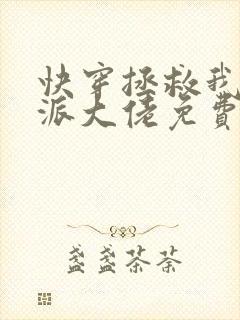 快穿拯救我
派大佬免费
盏盏茶茶